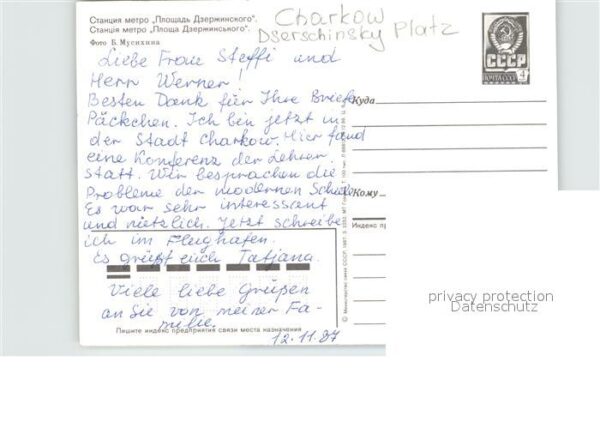 Станция метро „Площадь Дзержинского“.
Станція метро „Площа Дзержинського“.
Фото Б. Мусихина
Charkow
Dserschinsky Platz
СССР
ПОЧТА СССР
4
Liebe Frau Steffi und
Herr Werner!
Besten Dank für Ihre Briefe,
Päckchen. Ich bin jetzt in
der Stadt Charkow. Hier fand
eine Konferenz der Lehrer
statt. Wir besprachen die
Probleme der modernen Schule.
Es war sehr interessant
und nützlich. Jetzt schreibe
ich im Flughafen.
Es grüßt euch Tatjana.
Viele liebe Grüßen
an Sie von meiner Fa-
milie.
12.11.87
Куда
Кому
Индекс
Пишите индекс предприятия связи места назначения
© Министерство связи СССР. 1987.
privacy protection
Datenschutz